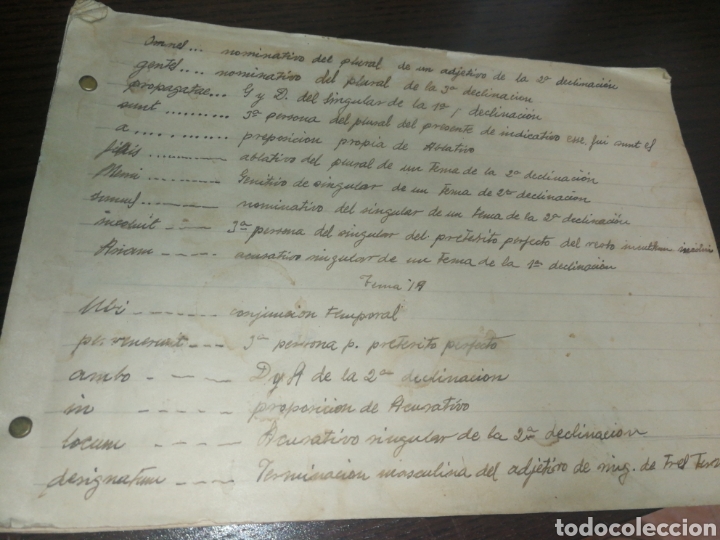 Omnes... nominativo del plural de un adjetivo de la 2ª declinación
gentes.... nominativo del plural de la 3ª declinacion
propagatae... G y D. del singular de la 1ª declinación
sunt ......... 3ª persona del plural del presente de indicativo esse fui sunt el
a........... preposicion propia de Ablativo
filiis ------- ablativo del plural de un Tema de la 2ª declinación
------- Genitivo de singular de un Tema de 2ª declinación
------- nominativo del singular de un tema de la 2ª declinación
incoluit ---- 3ª persona del singular del pretérito perfecto del
Asiam ----- acusativo singular de un Tema de la 1ª declinación
Tema 19
Ubi ------ conjuncion temporal
pervenerunt --- 3ª persona p. pretérito perfecto
ambo - --- D y A de la 2ª declinacion
in - --- - proposición de Acusativo
locum --- Acusativo singular de la 2ª declinacion
designatum --- Terminacion masculina del adjetivo de sing. de tres
todocoleccion.net